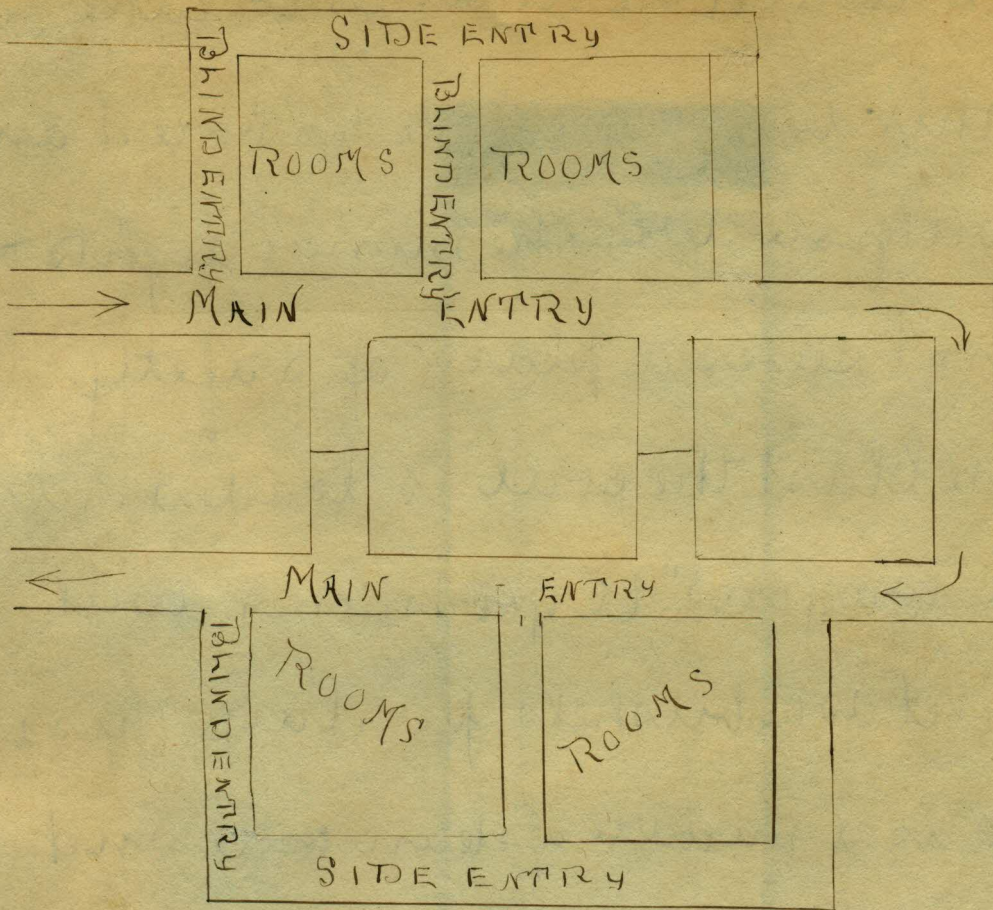 SIDE ENTRY
BLIND ENTRY
ROOMS
BLIND ENTRY
ROOMS
MAIN ENTRY
MAIN ENTRY
BLIND ENTRY
ROOMS
ROOMS
SIDE ENTRY